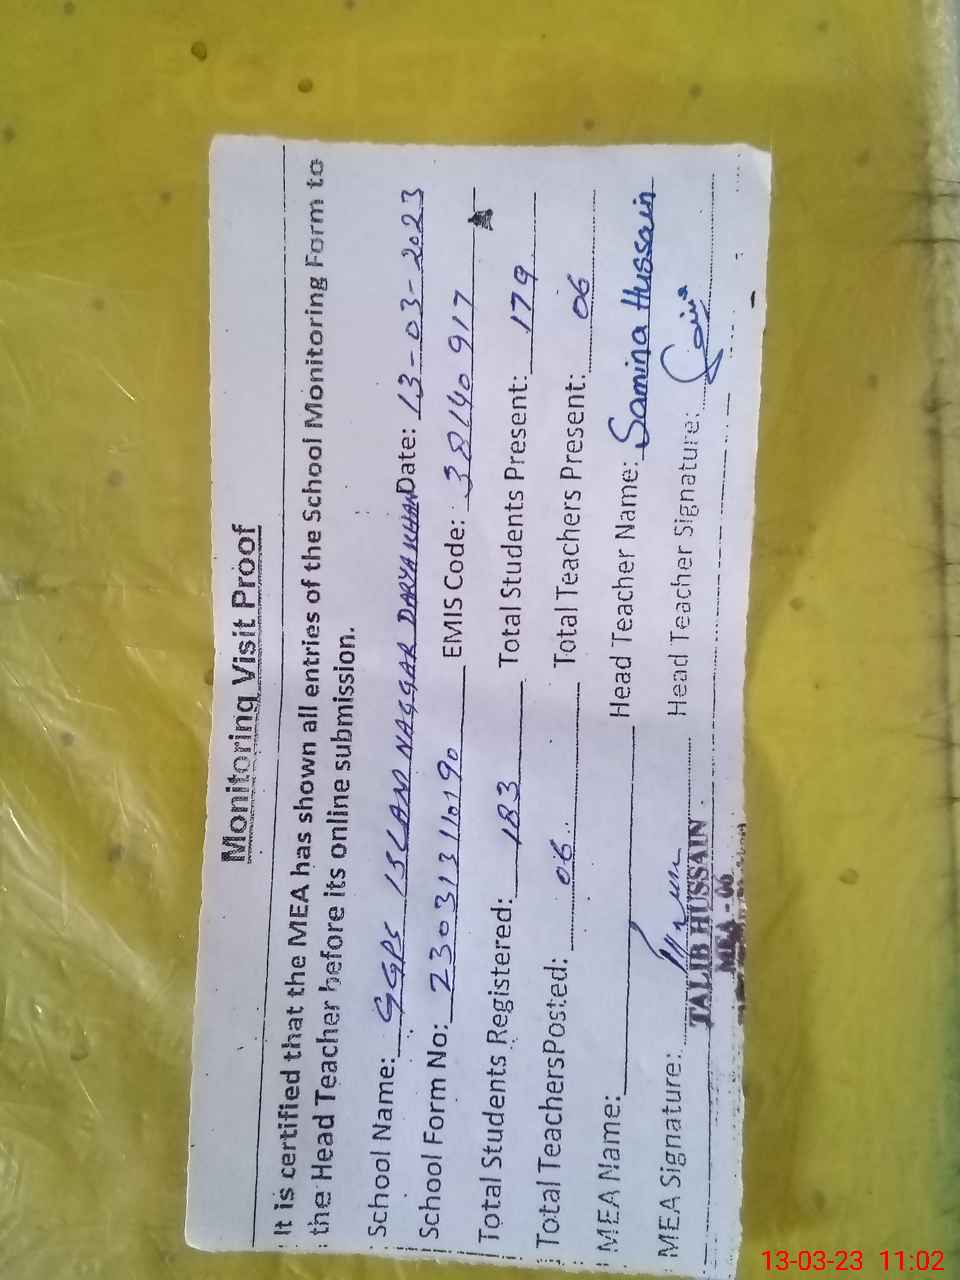 Monitoring Visit Proof
It is certified that the MEA has shown all entries of the School Monitoring Form to
the Head Teacher before its online submission.
School Name: GGPS ISLAM NAGGAR DARYA KHAN Date: 13-03-2023
School Form No: 230313110190 EMIS Code: 38140917
Total Students Registered: 183 Total Students Present: 179
Total Teachers Posted: 06 Total Teachers Present: 06
MEA Name: Head Teacher Name: Samina Hussain
MEA Signature: Head Teacher Signature:
TALIB HUSSAIN
MEA - 06
13-03-23 11:02